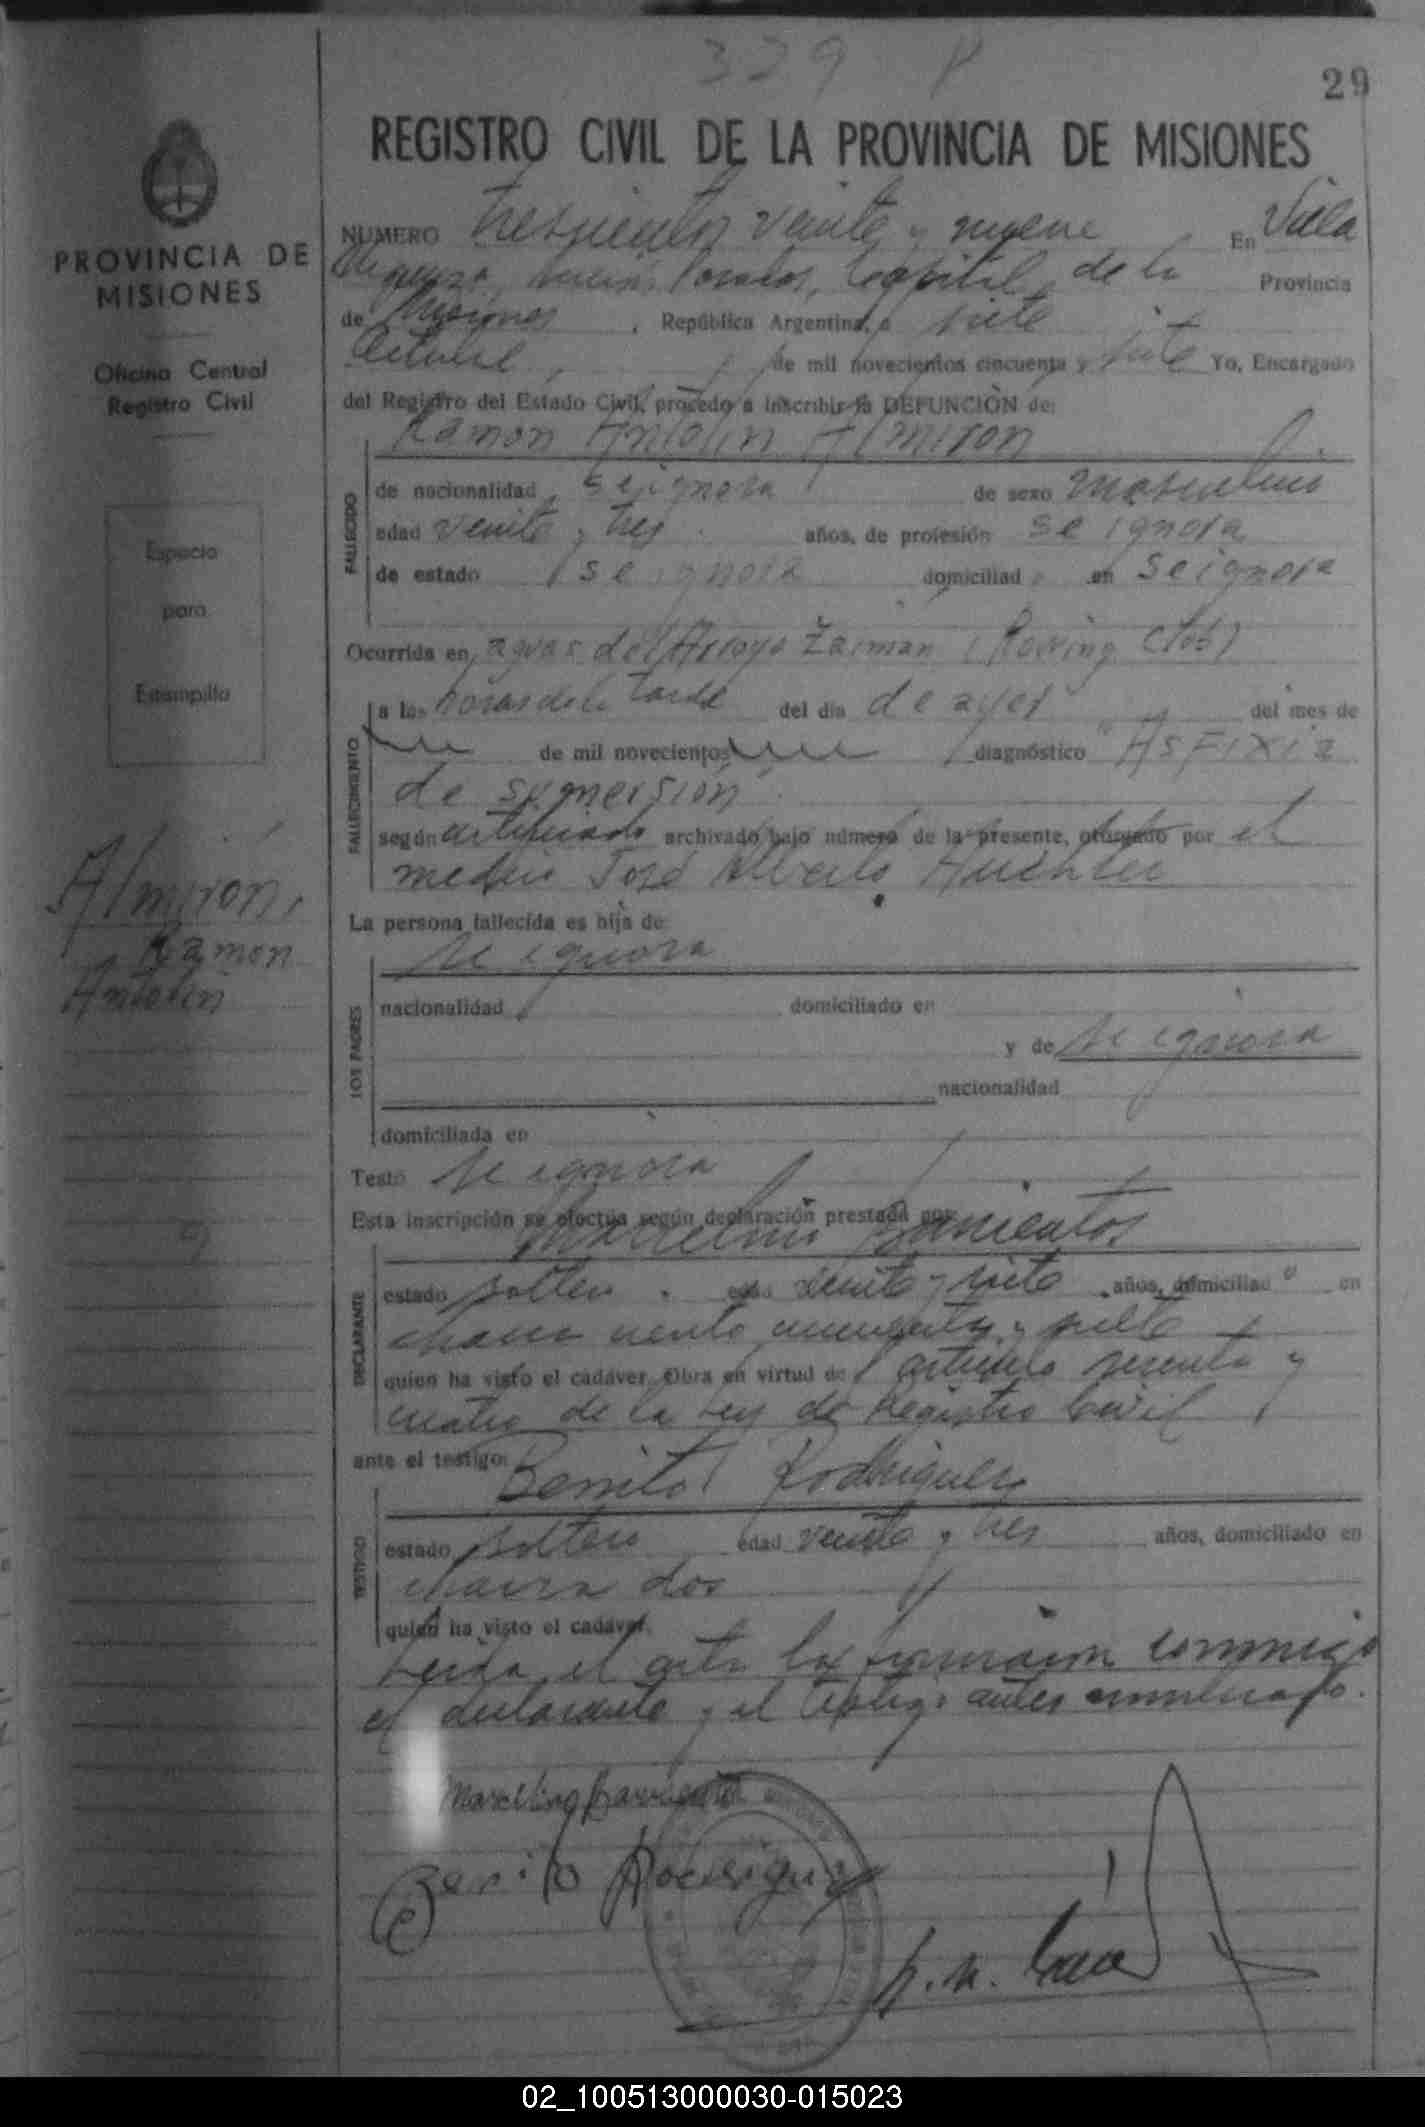 329
29
REGISTRO CIVIL DE LA PROVINCIA DE MISIONES
PROVINCIA DE
MISIONES
Oficina Central
Registro Civil
Espacio
para
Estampilla
Almirón,
Ramon
Antolin
NUMERO trescientos veinte y nueve En Villa
Capital de la Provincia
de Misiones, República Argentina, a siete
Octubre, de mil novecientos cincuenta y siete Yo, Encargado
del Registro del Estado Civil, procedo a inscribir la DEFUNCIÓN de:
Ramon Antolin Almiron
FALLECIDO
de nacionalidad se ignora de sexo masculino
edad veinte y tres años, de profesión se ignora
de estado se ignora domiciliad o en se ignora
Ocurrida en aguas del Arroyo Zaiman (Rowing Clob)
FALLECIMIENTO
a las horas de la tarde del día de ayer del mes de
de mil novecientos diagnóstico Asfixia
de sumersión
según certificado archivado bajo número de la presente, otorgado por el
medico José Alberto
La persona fallecida es hija de:
se ignora
LOS PADRES
nacionalidad domiciliado en
y de se ignora
nacionalidad
domiciliada en
Testó se ignora
Esta inscripción se efectúa según declaración prestada por:
Marcelino Barrientos
DECLARANTE
estado soltero edad veinte y siete años, domiciliad o en
chacra ciento cincuenta y siete
quien ha visto el cadáver. Obra en virtud de artículo sesenta y
cuatro de la Ley de Registro Civil
ante el testigo:
Benito Rodriguez
TESTIGO
estado soltero edad veinte y tres años, domiciliado en
chacra dos
quien ha visto el cadáver.
Leida el acta la firmaron conmigo
el declarante y el testigo antes nombrado.
Marcelino Barrientos
Benito Rodriguez
02_100513000030-015023